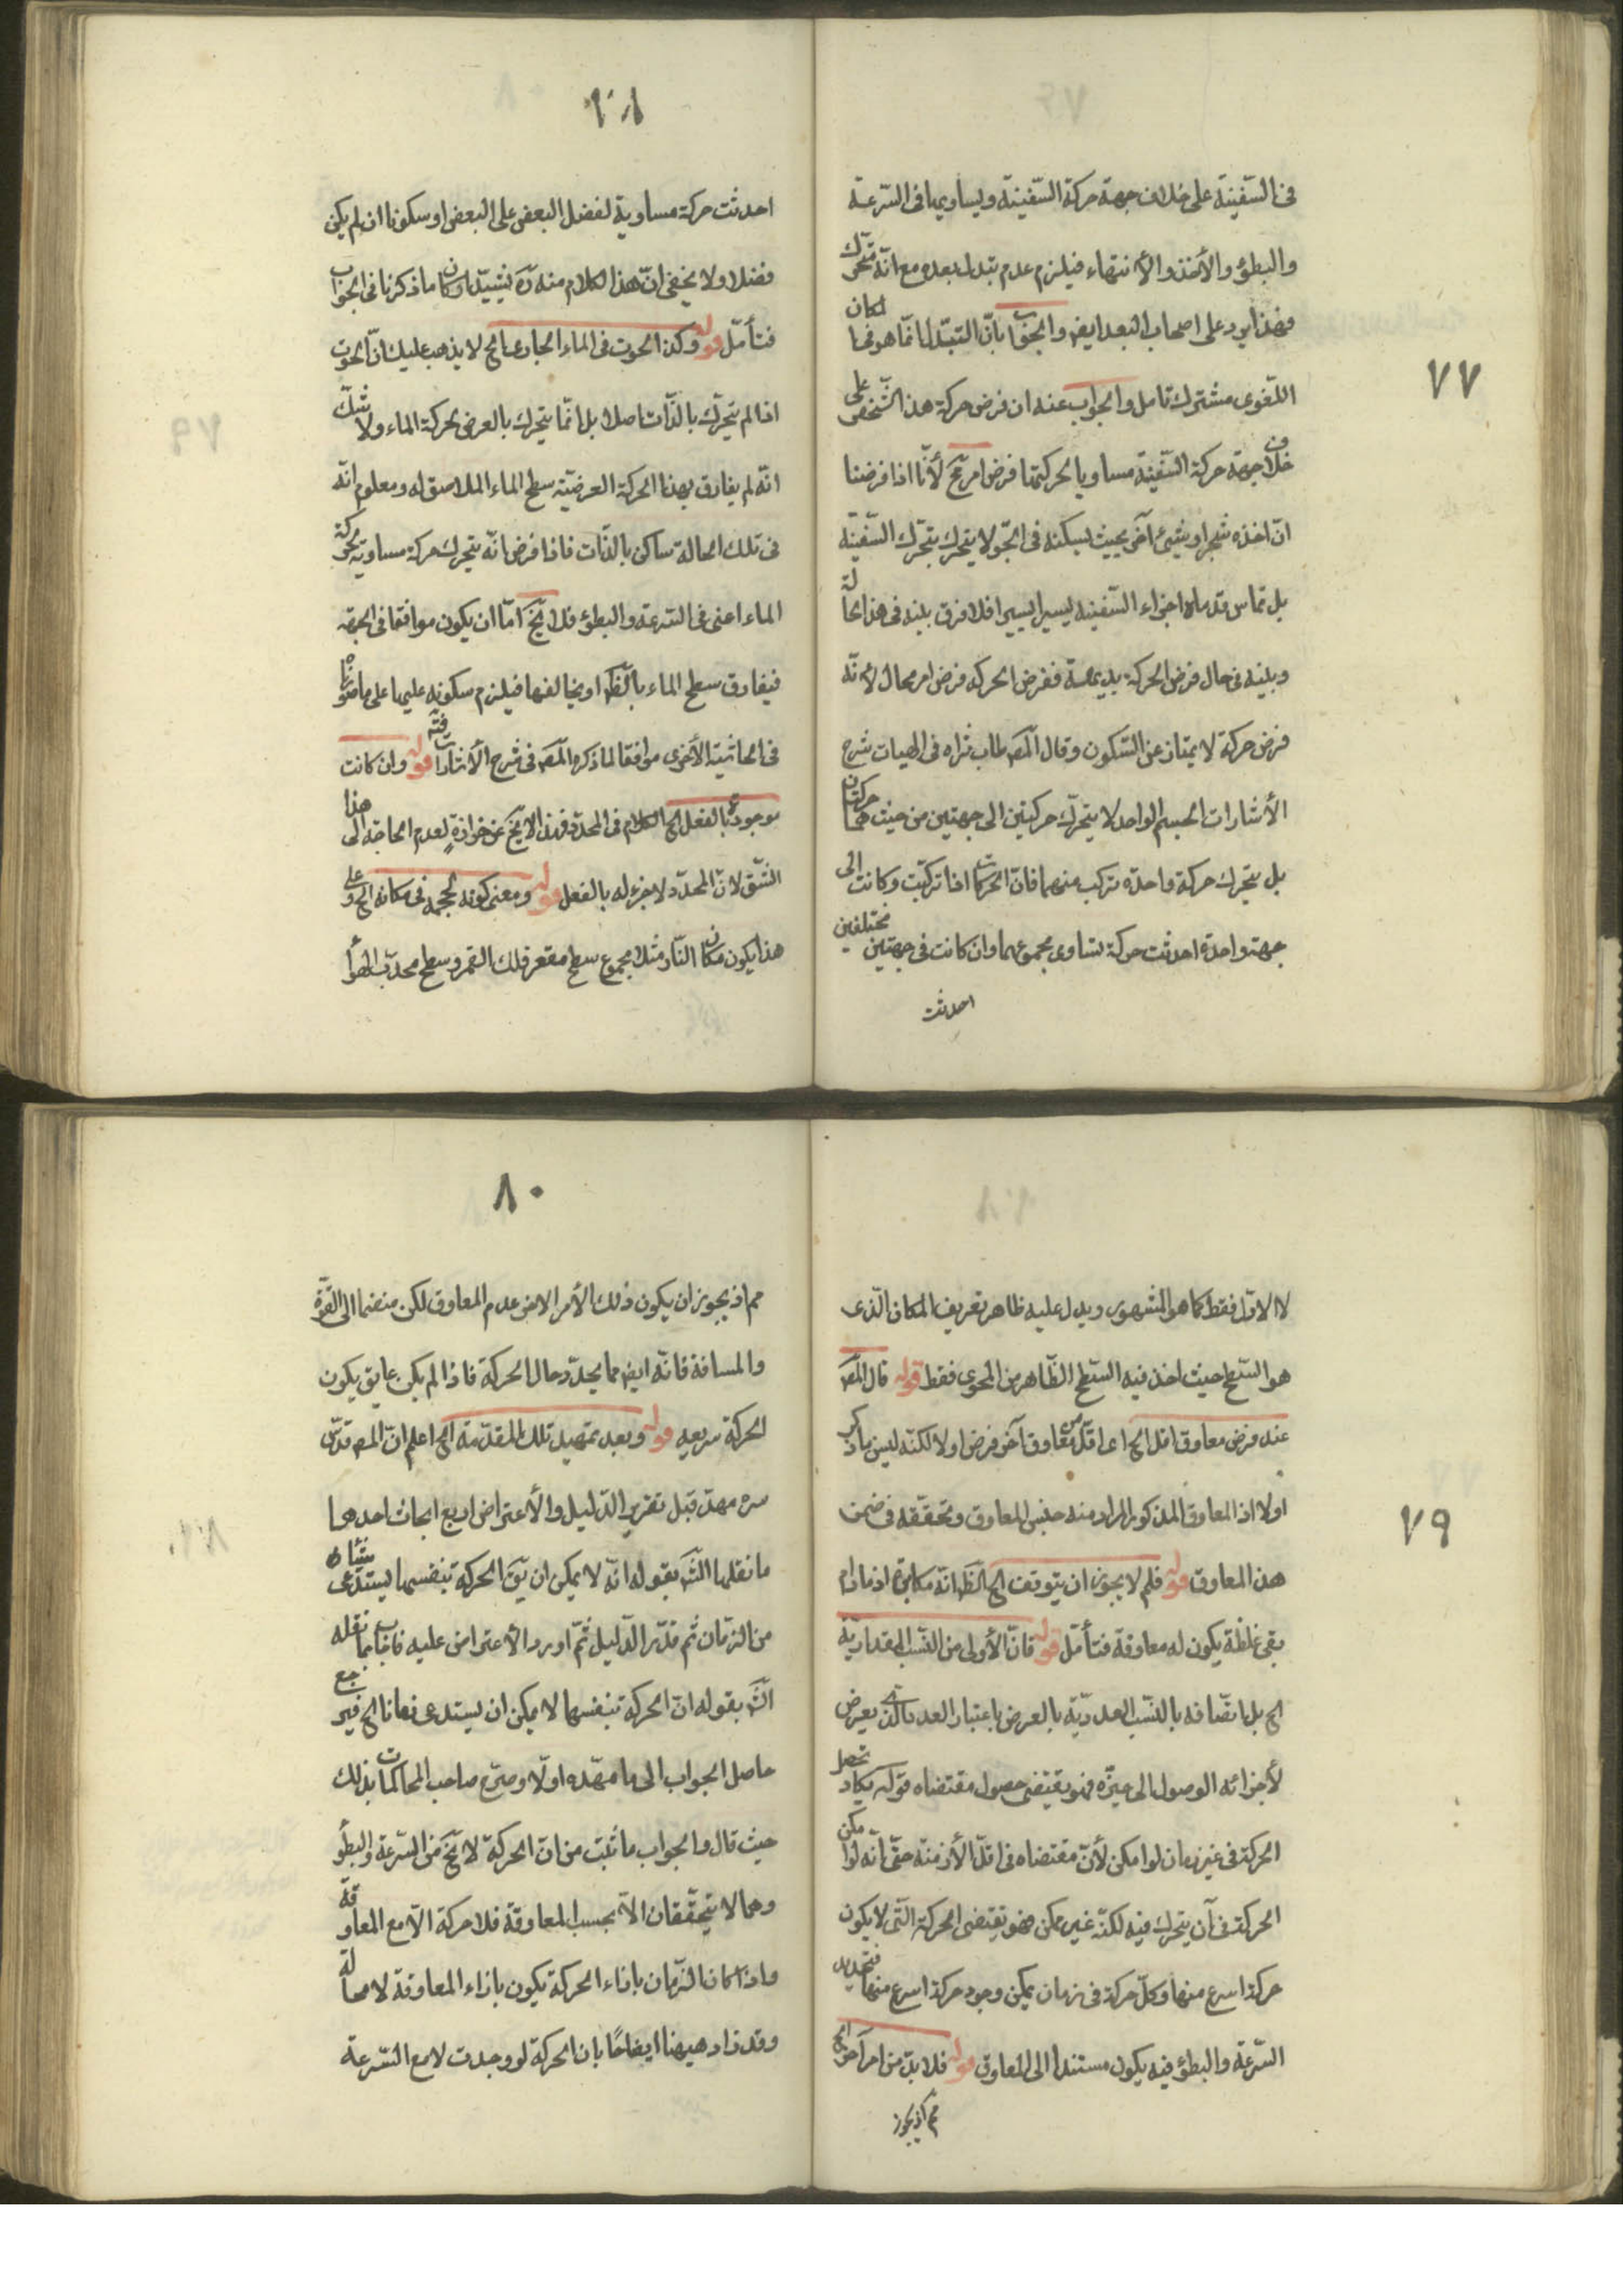 ٧٧
فى السّفينة على خلاف جهة حركة السّفينة ويساويها فى السّرعة
والبطؤ والأخذ والأنتهاء فيلزم عدم تبدل بعده مع انّه متحرك
فهذا يرد على اصحاب البعد ايضا والجواب بانّ التبدّل انّما هو فى المكان
اللّغوى مشترك تامل والجواب عنه ان فرض حركة هذا الشّخص على
خلاف جهة حركة السّفينة مساويا لحركتها فرض امر مح لأنّا اذا فرضنا
انّ اخذه شجر او شيئ آخر بحيث يسكنه فى الجّو لا يتحرك بتحرّك السّفينة
بل تماس قدماه اجزاء السّفينه يسيرا يسيرا فلا فرق بينه فى هذا الحالة
وبينه فى حال فرض الحركة بديهة ففرض الحركه فرض امر محال لأنّه
فرض حركة لا يمتاز عن السّكون وقال المص طاب ثراه فى الهيات شرح
الأشارات الجسم الواحد لا يتحرّك حركتين الى جهتين من حيث هما حركتان
بل يتحرك حركة واحدة تركب منهما فانّ الحركات اذا تركبّت وكانت الى
جهة واحدة احدثت حركة تساوى مجموعهما وان كانت فى جهتين مختلفين
احدثت
احدثت حركة مساوية لفضل البعض على البعض او سكونا ان لم يكن
فضلا ولا يخفى انّ هذا الكلام منه ره يشيّد اركان ما ذكرنا فى الجواب
فتأمّل قوله وكذا الحوت فى الماء الجارى الخ لا يذهب عليك انّ الحوت
اذا لم يتحرّك بالذّات اصلا بل انّما يتحرك بالعرض بحركة الماء ولا شكّ
انّه لم يفارق بهذا الحركة العرضيّة سطح الماء الملاصق له ومعلوم انّه
فى تلك الحالة ساكن بالذّات فاذا فرض انّه يتحرك حركة مساوية لحركة
الماء اعنى فى السّرعة والبطؤ فلا يخ امّا ان يكون موافقا فى الجهة
فيفارق سطح الماء بالظّ او يخالفها فيلزم سكونه عليها على ما صوّرناه
فى الحاشية الأخرى موافقا لما ذكره المص فى شرح الأشارات قوله وان كانت
موجودة بالفعل الخ الكلام فى المحدّد فهذا لا يخ عن خرازةٍ لعدم الحاجة الى هذا
الشّق لانّ المحدّد لا جزء له بالفعل قوله ومعنى كونه بحجمه فى مكانه الخ وعلى
هذا يكون مكان النّار مثلا مجموع سطح مقعر فلك القمر وسطح محدّب الهوأ
٧٩
لا الاوّل فقط كما هو المشهور ويدل عليه ظاهر تعريف المكان الّذى
هو السّطح حيث اخذ فيه السّطح الظّاهر من المحوى فقط قوله قال المص
عند فرض معاوق اقل الخ اى اقلّ من معاوق آخر فرض اولا لكنّه ليس ما ذكر
اولا اذ المعاوق المذكور المراد منه جنس المعاوق وتحققه فى ضمن
هذا المعاوق قوله فلم لا يجوز ان يتوقف الخ الظّ انّه مكابرة اذ ما دام
بقى غلظة يكون له معاوقة فتأمّل قوله فانّ الأولى من النّسب المقداريّة
الخ بل اتّصافه بالنّسب العدديّة بالعرض باعتبار العدد الّذى يعرض
لأجزائه الوصول الى حيّزه فهو يقتضى حصول مقتضاه قوله يكاد تحصل
الحركة فى غير زمان لو امكن لأنّ مقتضاه فى اقلّ الأزمنة حتّى انّه لو امكن
الحركة فى آن يتحرك فيه لكنّه غير ممكن فهو تقتضى الحركة الّتى لا يكون
حركة اسرع منها وكلّ حركة فى زمان يمكن وجود حركة اسرع منها فتحديد
السّرعة والبطؤ فيه يكون مستندا الى المعاوق قوله فلا بدّ من امر آخر الخ
مم اذ يجوز
٨٠
مم اذ يجوز ان يكون ذلك الأمر الاخر عدم المعاوق لكن منضما الى القوّة
والمسافة فانّه ايضا مما يحدّد حال الحركة فاذا لم يكن عايق يكون
الحركة سريعه قوله وبعد تمهيد تلك المقدّمة الخ اعلم انّ المص قدّس
سره مهدّ قبل تقرير الدّليل والأعتراض اربع ابحاث احدها
ما نقلها الشّ بقوله انّه لا يمكن ان يق الحركة بنفسها يستدعى شيئا
من الزمّان ثم قرّر الدّليل ثمّ اورد الأعتراض عليه فاجاب بما نقله
الشّ بقوله انّ الحركة بنفسها لا يمكن ان يستدعى زمانا الخ فيرجع
حاصل الجواب الى ما مهّده اولّا وصرّح صاحب المحاكمات بذلك
حيث قال والجواب ما ثبت من انّ الحركة لا تخ من السّرعة والبطؤ
وهما لا يتحققّان الّا بحسب المعاوقة فلا حركة الّا مع المعاوقة
واذا كان الزّمان بازاء الحركة يكون بازاء المعاوقة لا محالة
وقد زاد هيهنا ايضاحًا بان الحركة لو وجدت لا مع السّرعة